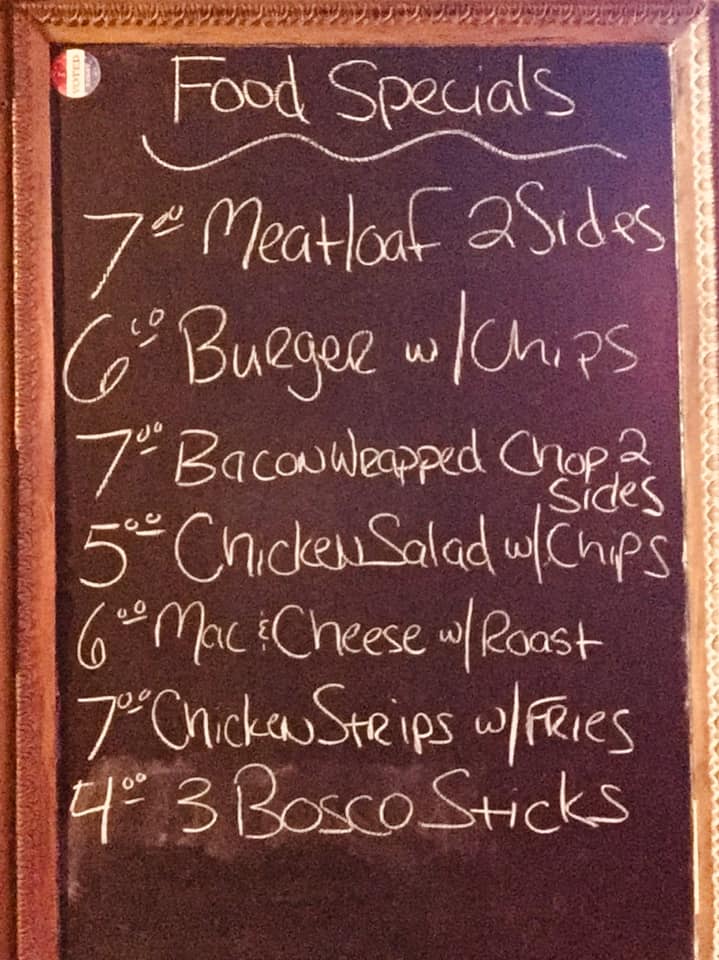 VOTED
Food Specials
7.00 Meatloaf 2 Sides
6.00 Burger w/Chips
7.00 Bacon Wrapped Chop 2
Sides
5.00 Chicken Salad w/Chips
6.00 Mac & Cheese w/Roast
7.00 Chicken Strips w/Fries
4.00 3 Bosco Sticks